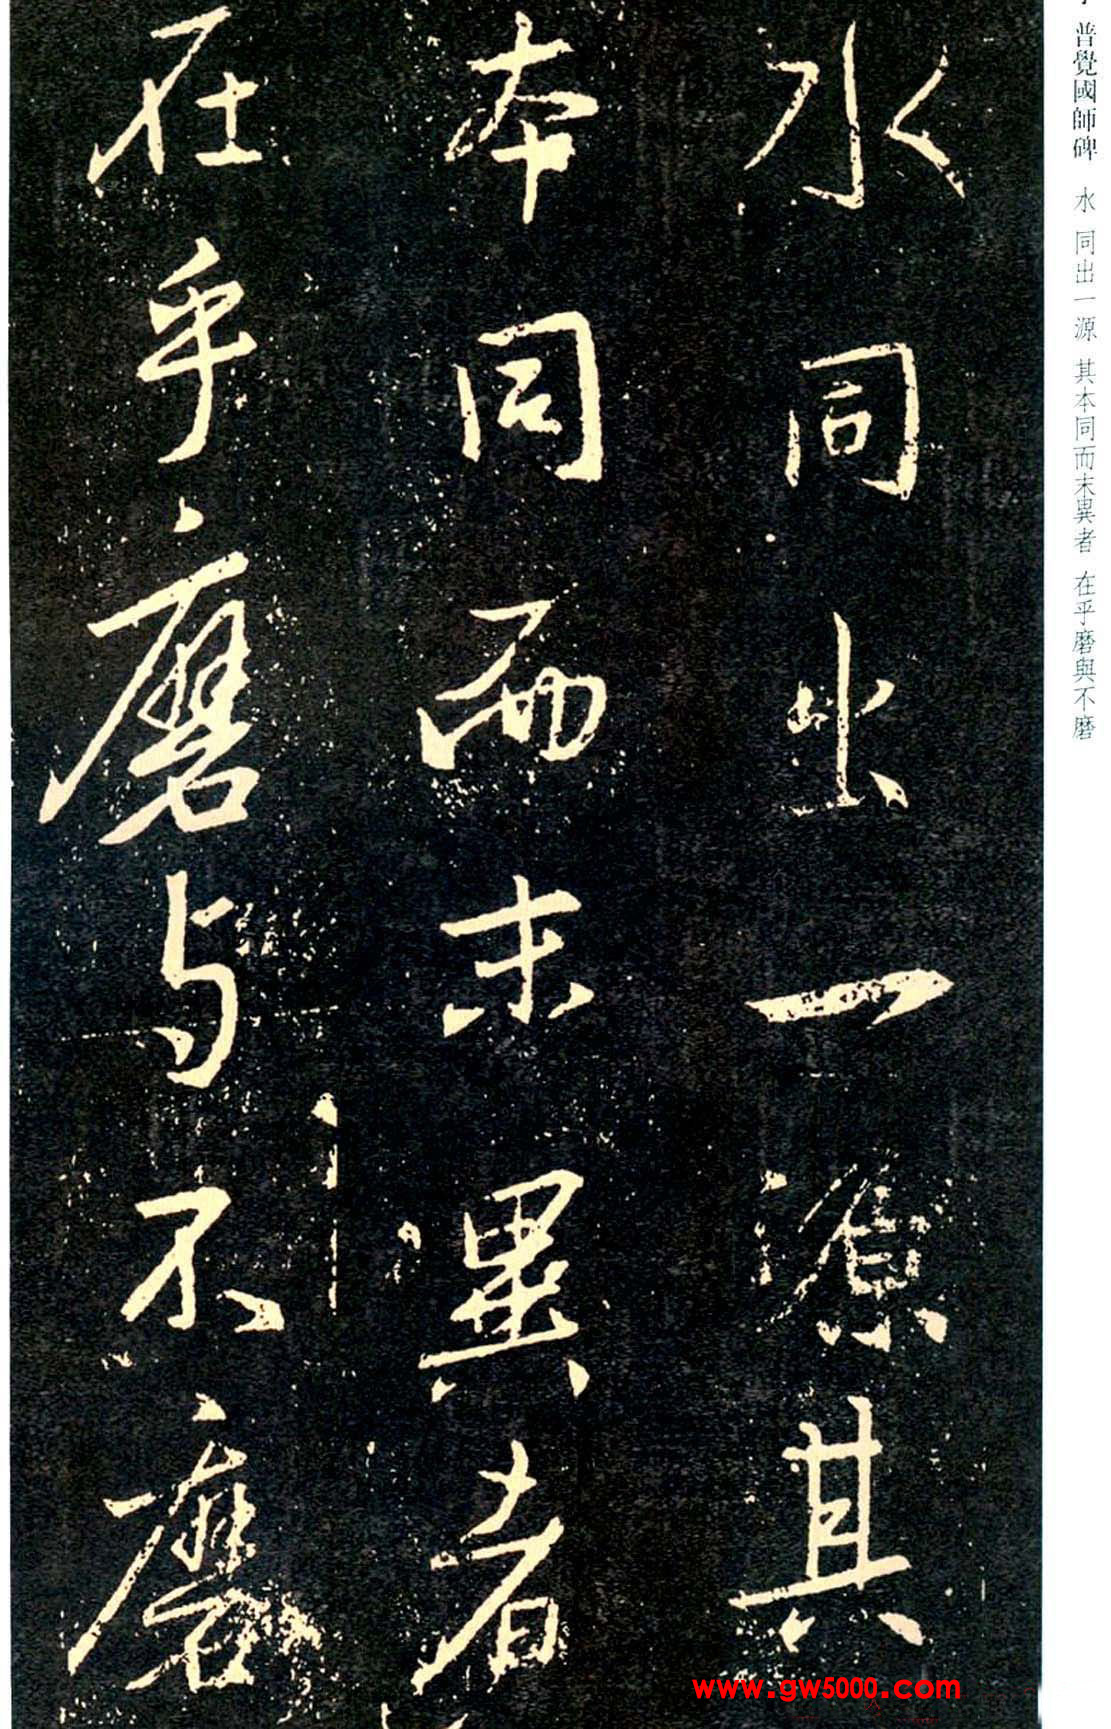 普覺國師碑 水 同出一源 其本同而末異者 在乎磨與不磨
水同出一源其
本同而末異者
在乎磨与不磨
www.gw5000.com